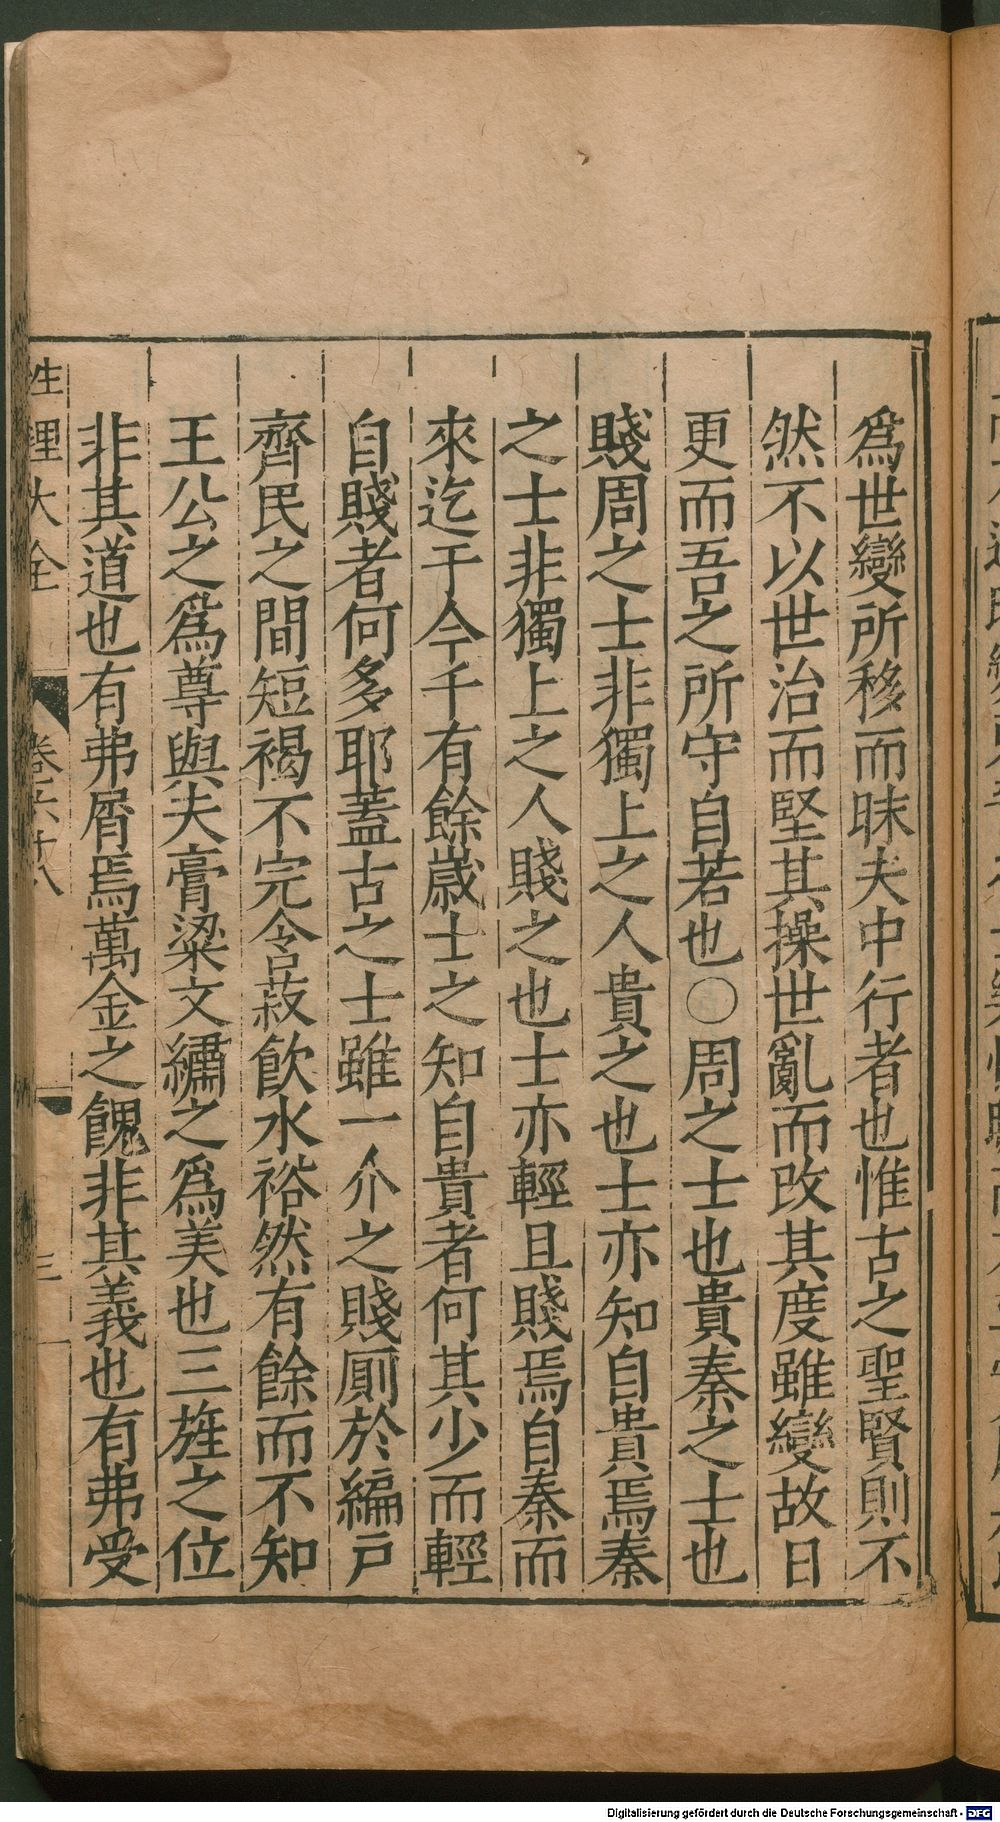 爲世變所移而昧夫中行者也惟古之聖賢則不
然不以世治而堅其操世亂而改其度雖變故日
更而吾之所守自若也〇周之士也貴秦之士也
賤周之士非獨上之人貴之也士亦知自貴焉秦
之士非獨上之人賤之也士亦輕且賤焉自秦而
來迄于今千有餘歲士之知自貴者何其少而輕
自賤者何多耶蓋古之士雖一介之賤厠於編戸
齊民之間短褐不完含菽飮水裕然有餘而不知
王公之爲尊與夫膏粱文繡之爲美也三旌之位
非其道也有弗屑焉萬金之餽非其義也有弗受
性理大全
卷五十八
三
Digitalisierung gefördert durch die Deutsche Forschungsgemeinschaft - DFG